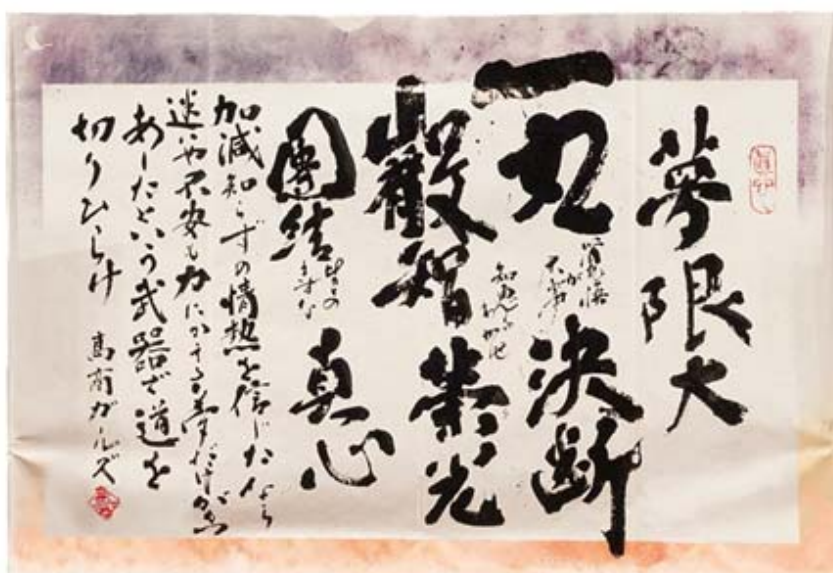 夢限大
一丸 決断
叡智 栄光
團結 真心
加減知らずの情熱を信じたなら
迷いや不安も力にかえる
あしたという武器で道を
切りひらけ ガールズ